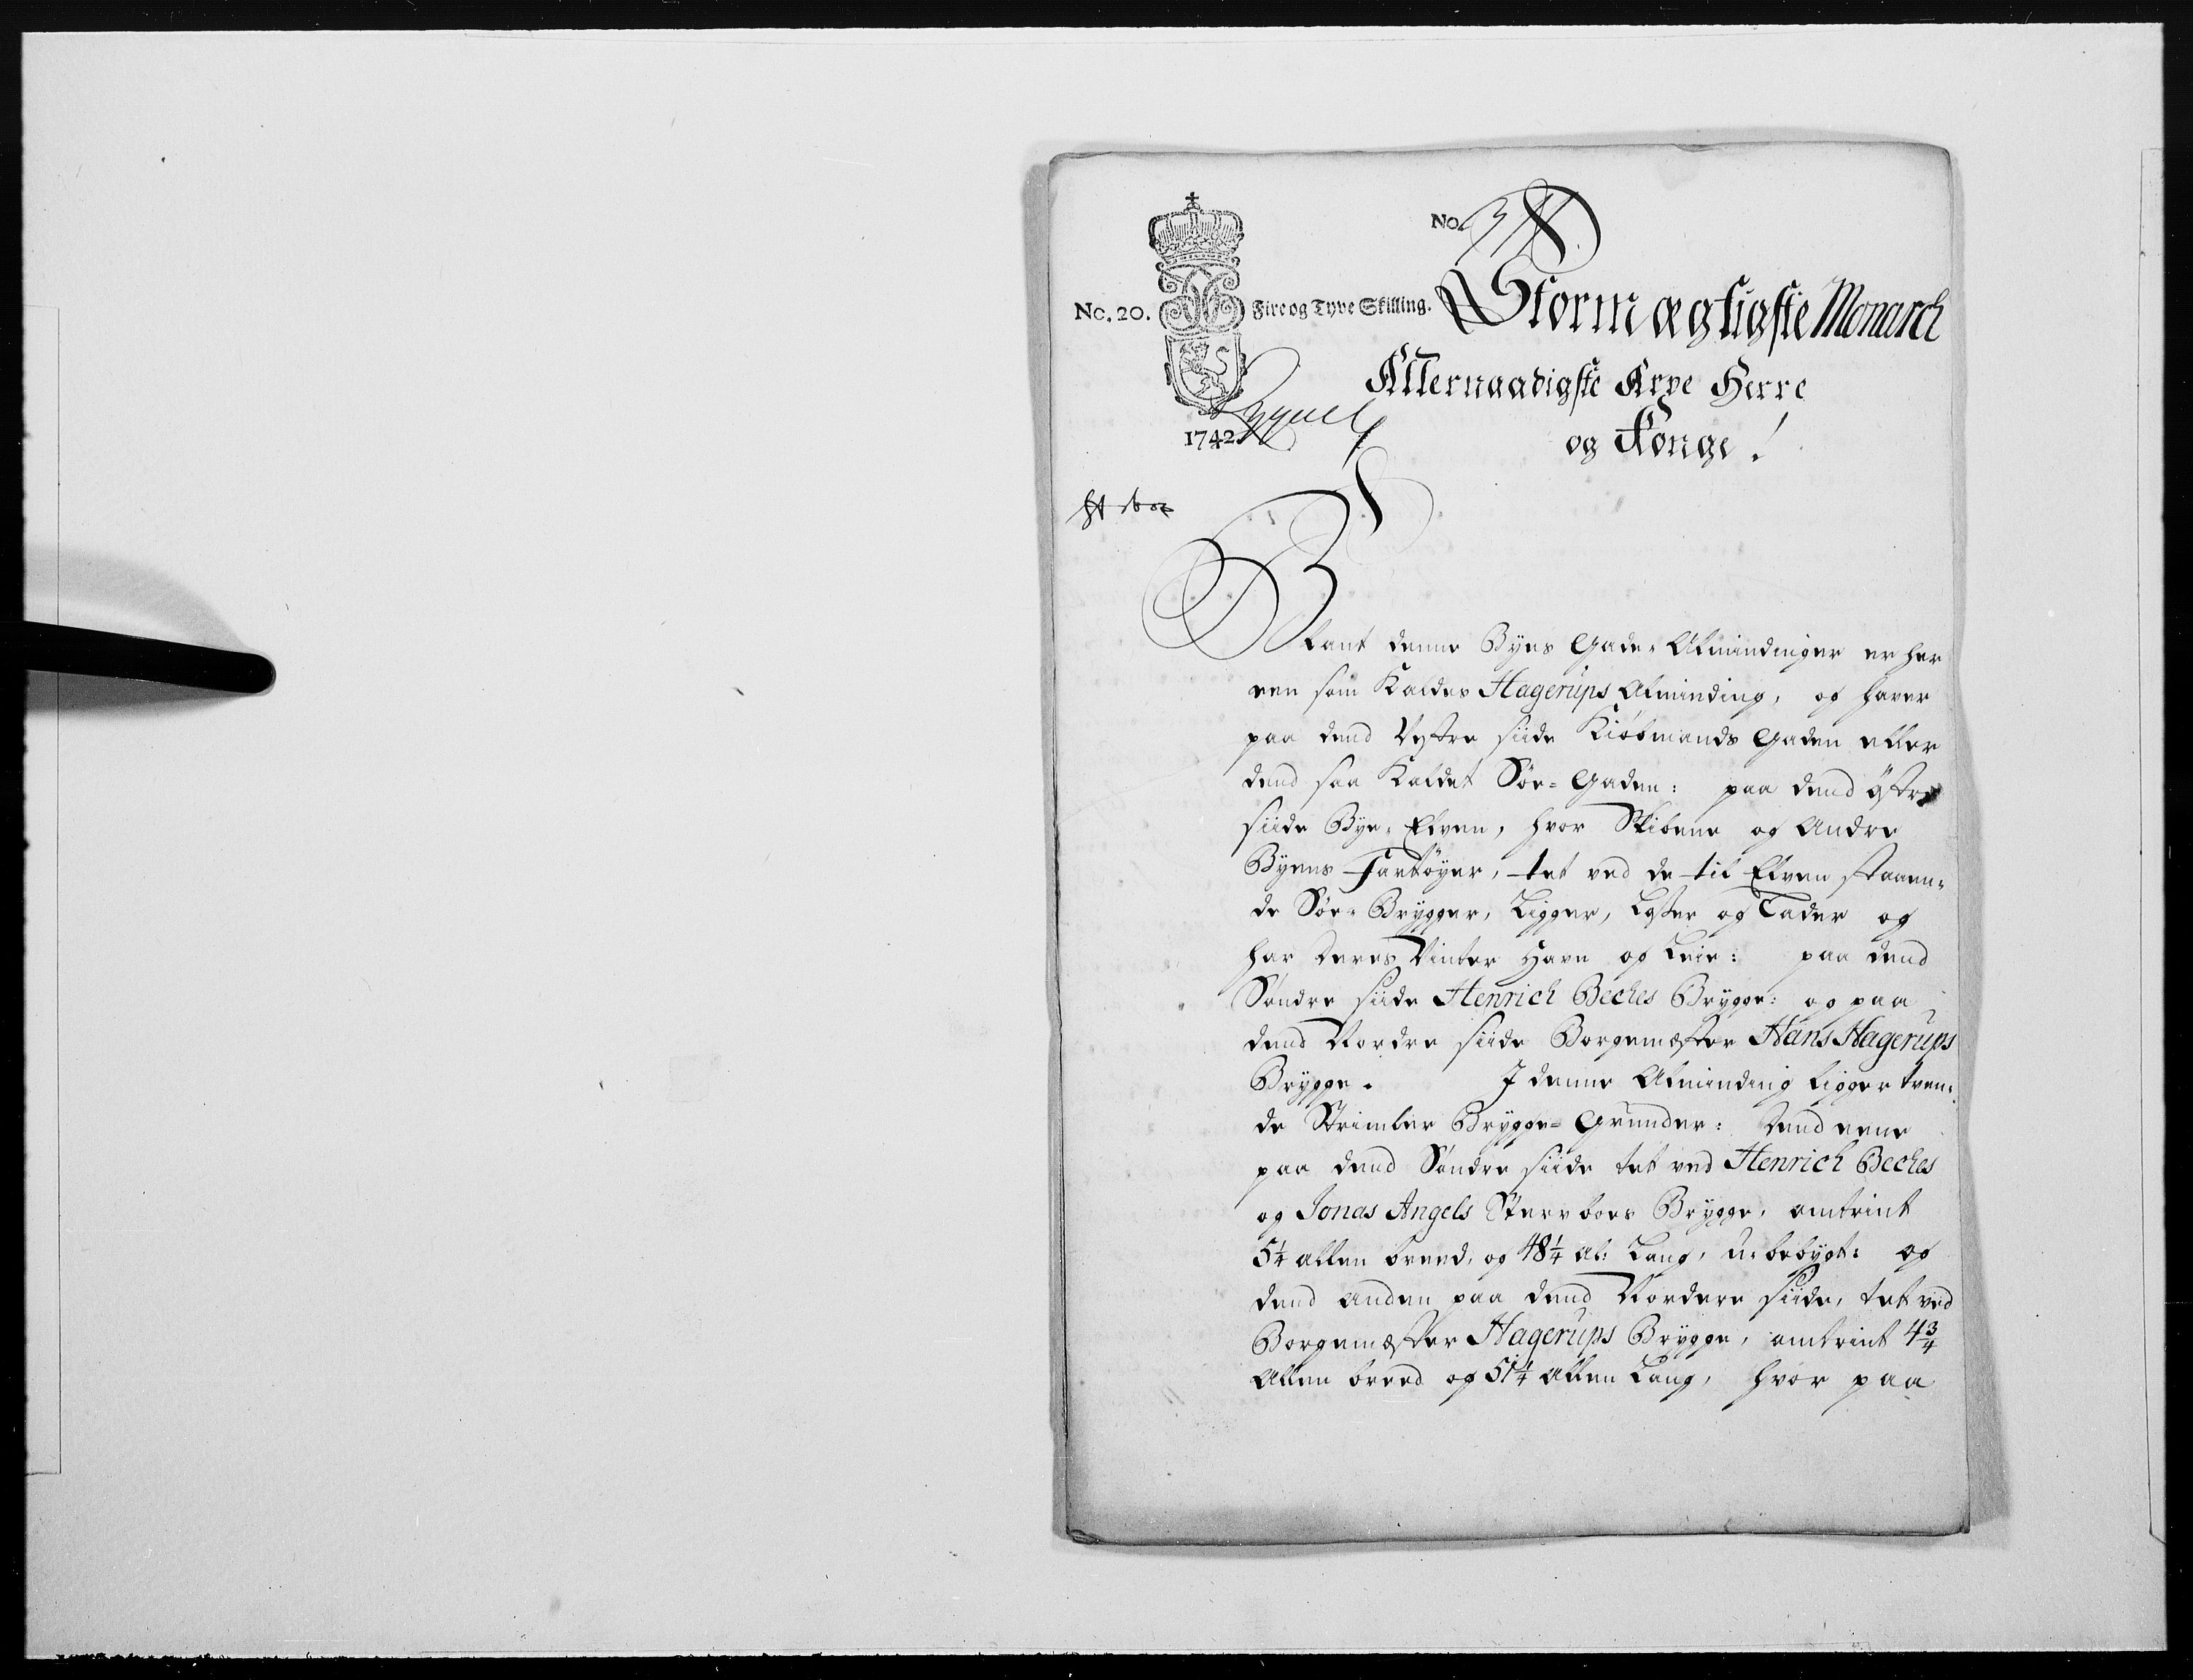 No.
No. 20. Fire og Tyve Skilling.
Stormægtigste Monarch
Allernaadigste Arve Herre
1742
og Konge!
Blant denne Byes Gade-Almindinger er her
een som Kaldes Hagerups Alminding, og haver
paa dend Vestre siide Kiøbmands Gaden eller
dend saa Kaldet Søe-Gaden: paa dend østre
siide Bye-Elven, hvor Skibene og Andre
Byens Fartøyer, tet ved de til Elven staaen-
de Søe-Brygger, Ligger, Loßer og Lader og
har deres Vinter Havn og Leie: paa dend
Søndre siide Henrich Beches Brygge: og paa
dend Nordre siide Borgemæster Hans Hagerups
Brygge. I denne Alminding ligger tven-
de Strimler Brygge-Grunder: dend eene
paa dend Søndre siide tet ved Henrich Beches
og Jonas Angels Stervboes Brygge, omtrint
5¼ allen breed, og 48¼ al: Lang, u-bebygt: og
dend anden paa dend Nordere siide, tet ved
Borgemæster Hagerups Brygge, omtrint 4¾
Allen breed og 51¼ allen Lang, hvor paa